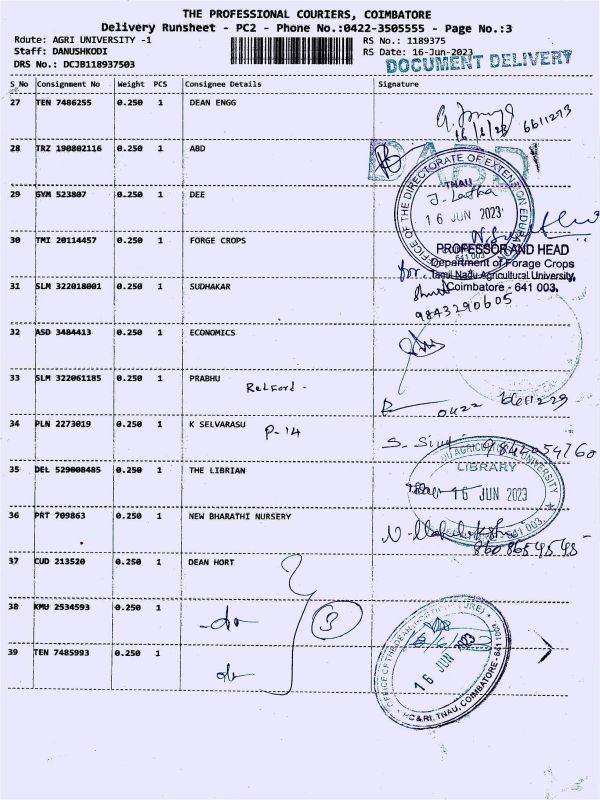 THE PROFESSIONAL COURIERS, COIMBATORE
Delivery Runsheet - PC2 - Phone No.:0422-3505555 - Page No.:3
Rdute: AGRI UNIVERSITY -1
RS No.: 1189375
Staff: DANUSHKODI
RS Date: 16-Jun-2023
DRS No.: DCJB118937503
DOCUMENT DELIVERY
S_No Consignment No Weight PCS Consignee Details Signature
27 TEN 7486255 0.250 1 DEAN ENGG
16/6/23 6611273
28 TRZ 190802116 0.250 1 ABD
OFFICE OF THE DIRECTORATE OF EXTENSION EDUCATION
TNAU
29 GYM 523807 0.250 1 DEE
16 JUN 2023
641 003
30 TMI 20114457 0.250 1 FORGE CROPS
PROFESSOR AND HEAD
Department of Forage Crops
for. Tamil Nadu Agricultural University,
Coimbatore - 641 003.
31 SLM 322018001 0.250 1 SUDHAKAR
9843290605
32 ASD 3484413 0.250 1 ECONOMICS
33 SLM 322061185 0.250 1 PRABHU
0422
34 PLN 2273019 0.250 1 K SELVARASU
P-14
9842054760
35 DEL 529008485 0.250 1 THE LIBRIAN
LIBRARY
16 JUN 2023
36 PRT 709863 0.250 1 NEW BHARATHI NURSERY
8608654545
37 CUD 213520 0.250 1 DEAN HORT
38 KMU 2534593 0.250 1
-do
3
39 TEN 7485993 0.250 1
do
16 JUN 2023
HC & RI, TNAU, COIMBATORE - 641 003